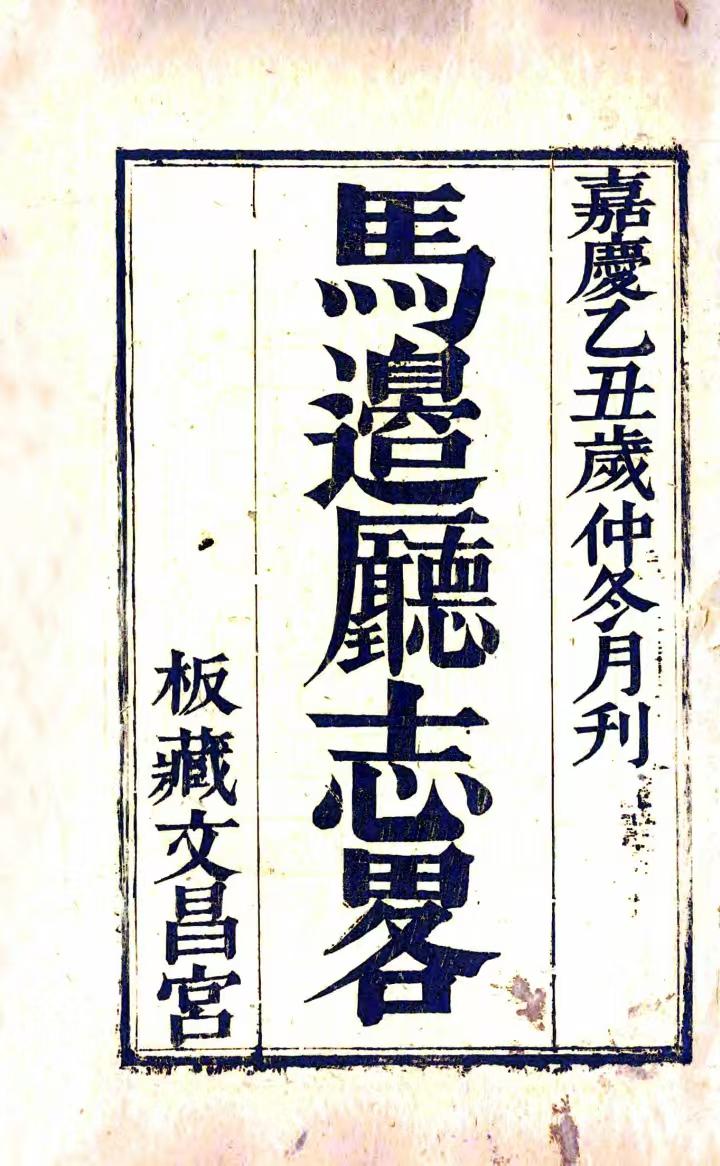 嘉慶乙丑歲仲冬月刊
馬邊廳志畧
板藏文昌宮